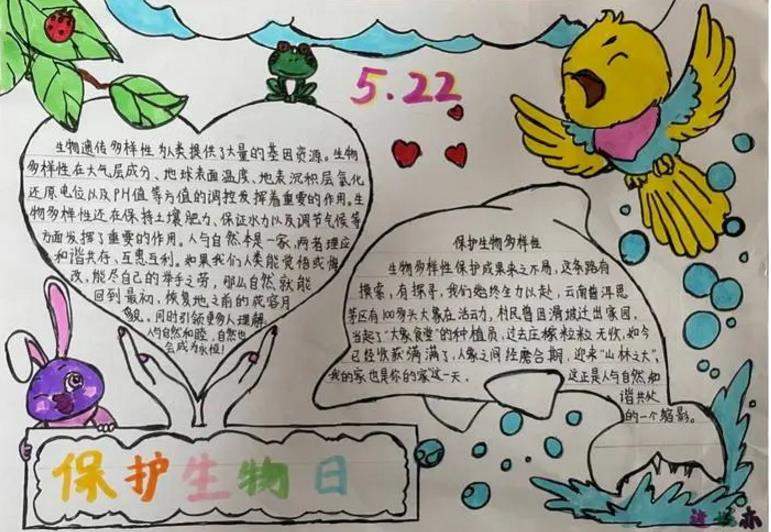 5.22
生物遗传多样性为人类提供了大量的基因资源。生物
多样性在大气层成分、地球表面温度、地表沉积层氧化
还原电位以及PH值等方值的调控发挥着重要的作用。生
物多样性还在保持土壤肥力、保证水力以及调节气候等
方面发挥了重要的作用。人与自然本是一家,两者理应
和谐共存、互惠互利。如果我们人类能觉悟或悔
改,能尽自己的举手之劳,那么自然就能
回到最初,恢复地之前的花容月
貌。同时引领更多人理解
人与自然和睦,自然也
会成为永恒!
保护生物多样性
生物多样性保护成果来之不易,这条路有
摸索,有探寻,我们始终全力以赴,云南普洱思
茅区有100多头大象在活动,村民曾因滑坡迁出家园,
当起了"大象食堂"的种植员,过去庄稼粒粒无收,如今
已经收获满满了,人象之间经磨合期,迎来"山林之大",
我的家也是你的家这一天。
这正是人与自然和
谐共处
的一个缩影。
保护生物日